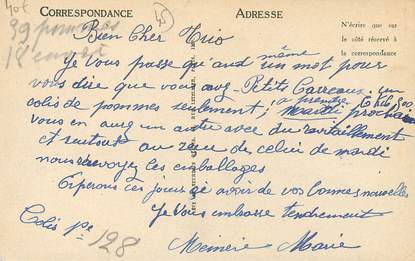 CORRESPONDANCE
ADRESSE
N'écrire que sur
le côté réservé à
la correspondance
Bien Cher Trio
Je vous passe quand même un mot pour
vous dire que vous avez Petits Carreaux un
colis de pommes seulement, à prendre 6 k 500
vous en aurez un autre avec du ravitaillement
mardi prochain
et surtout au reçu de celui de mardi
nous renvoyez les emballages
Espérons ces jours ci avoir de vos bonnes nouvelles
Je vous embrasse tendrement
Marie
Colis
128